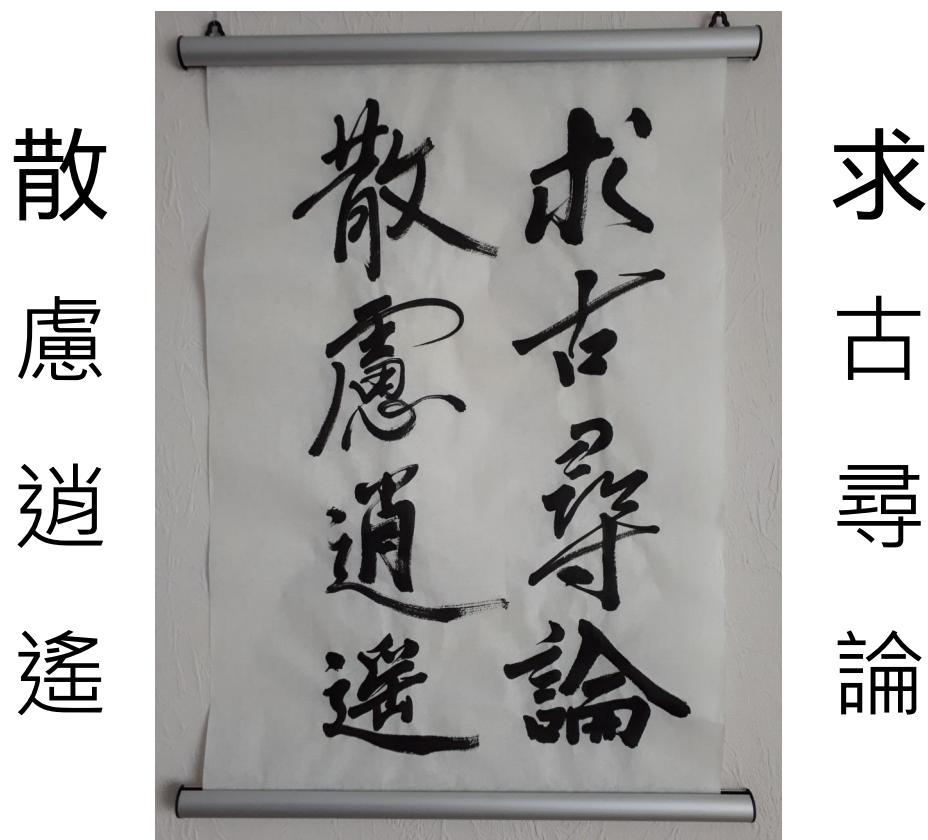 求古尋論
散慮逍遙
求古尋論
散慮逍遙